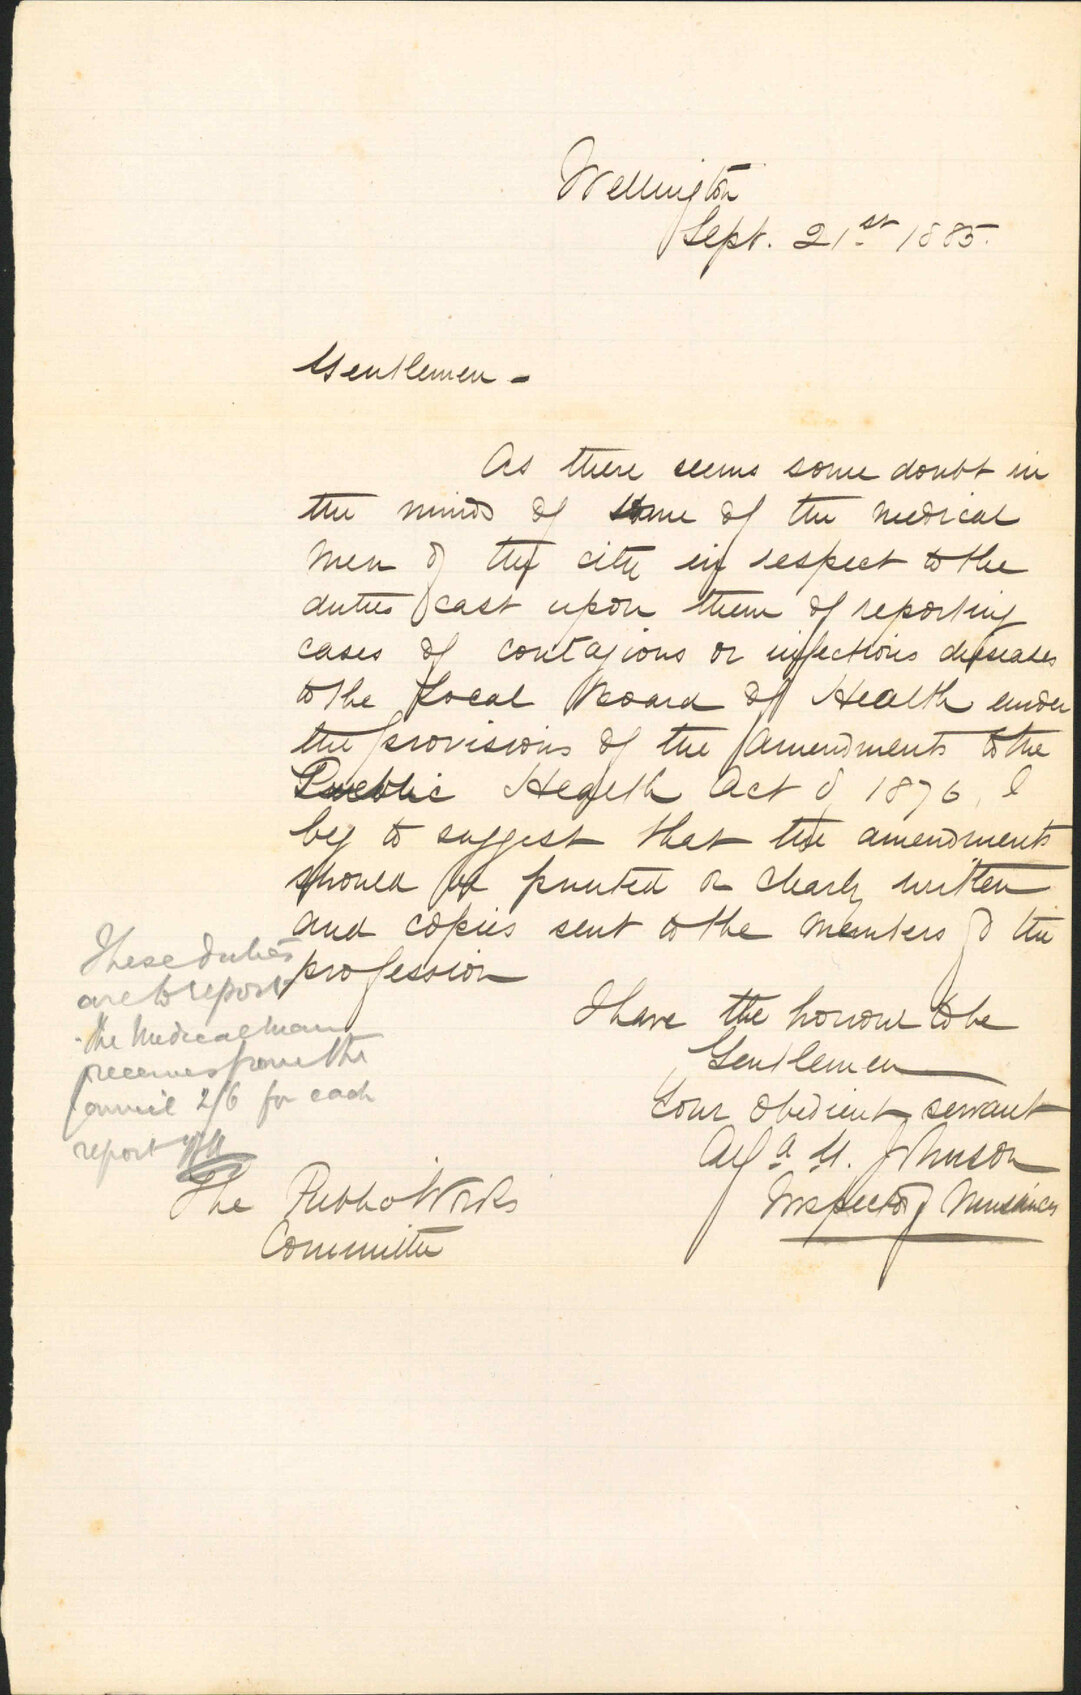 Wellington
Sept. 21st 1885.
Gentlemen -
As there seems some doubt in
the minds of some of the medical
men of the city in respect to the
duties cast upon them of reporting
cases of contagious or infectious diseases
to the Local Board of Health under
the provisions of the amendments to the
Public Health Act of 1876, I
beg to suggest that the amendments
should be printed or clearly written
and copies sent to the members of the
profession
I have the honour to be
Gentlemen
Your obedient servant
Johnson
Inspector of Nuisances
These duties
are to report
the Medical man
receives from the
Council 2/6 for each
report
The Public Works
Committee